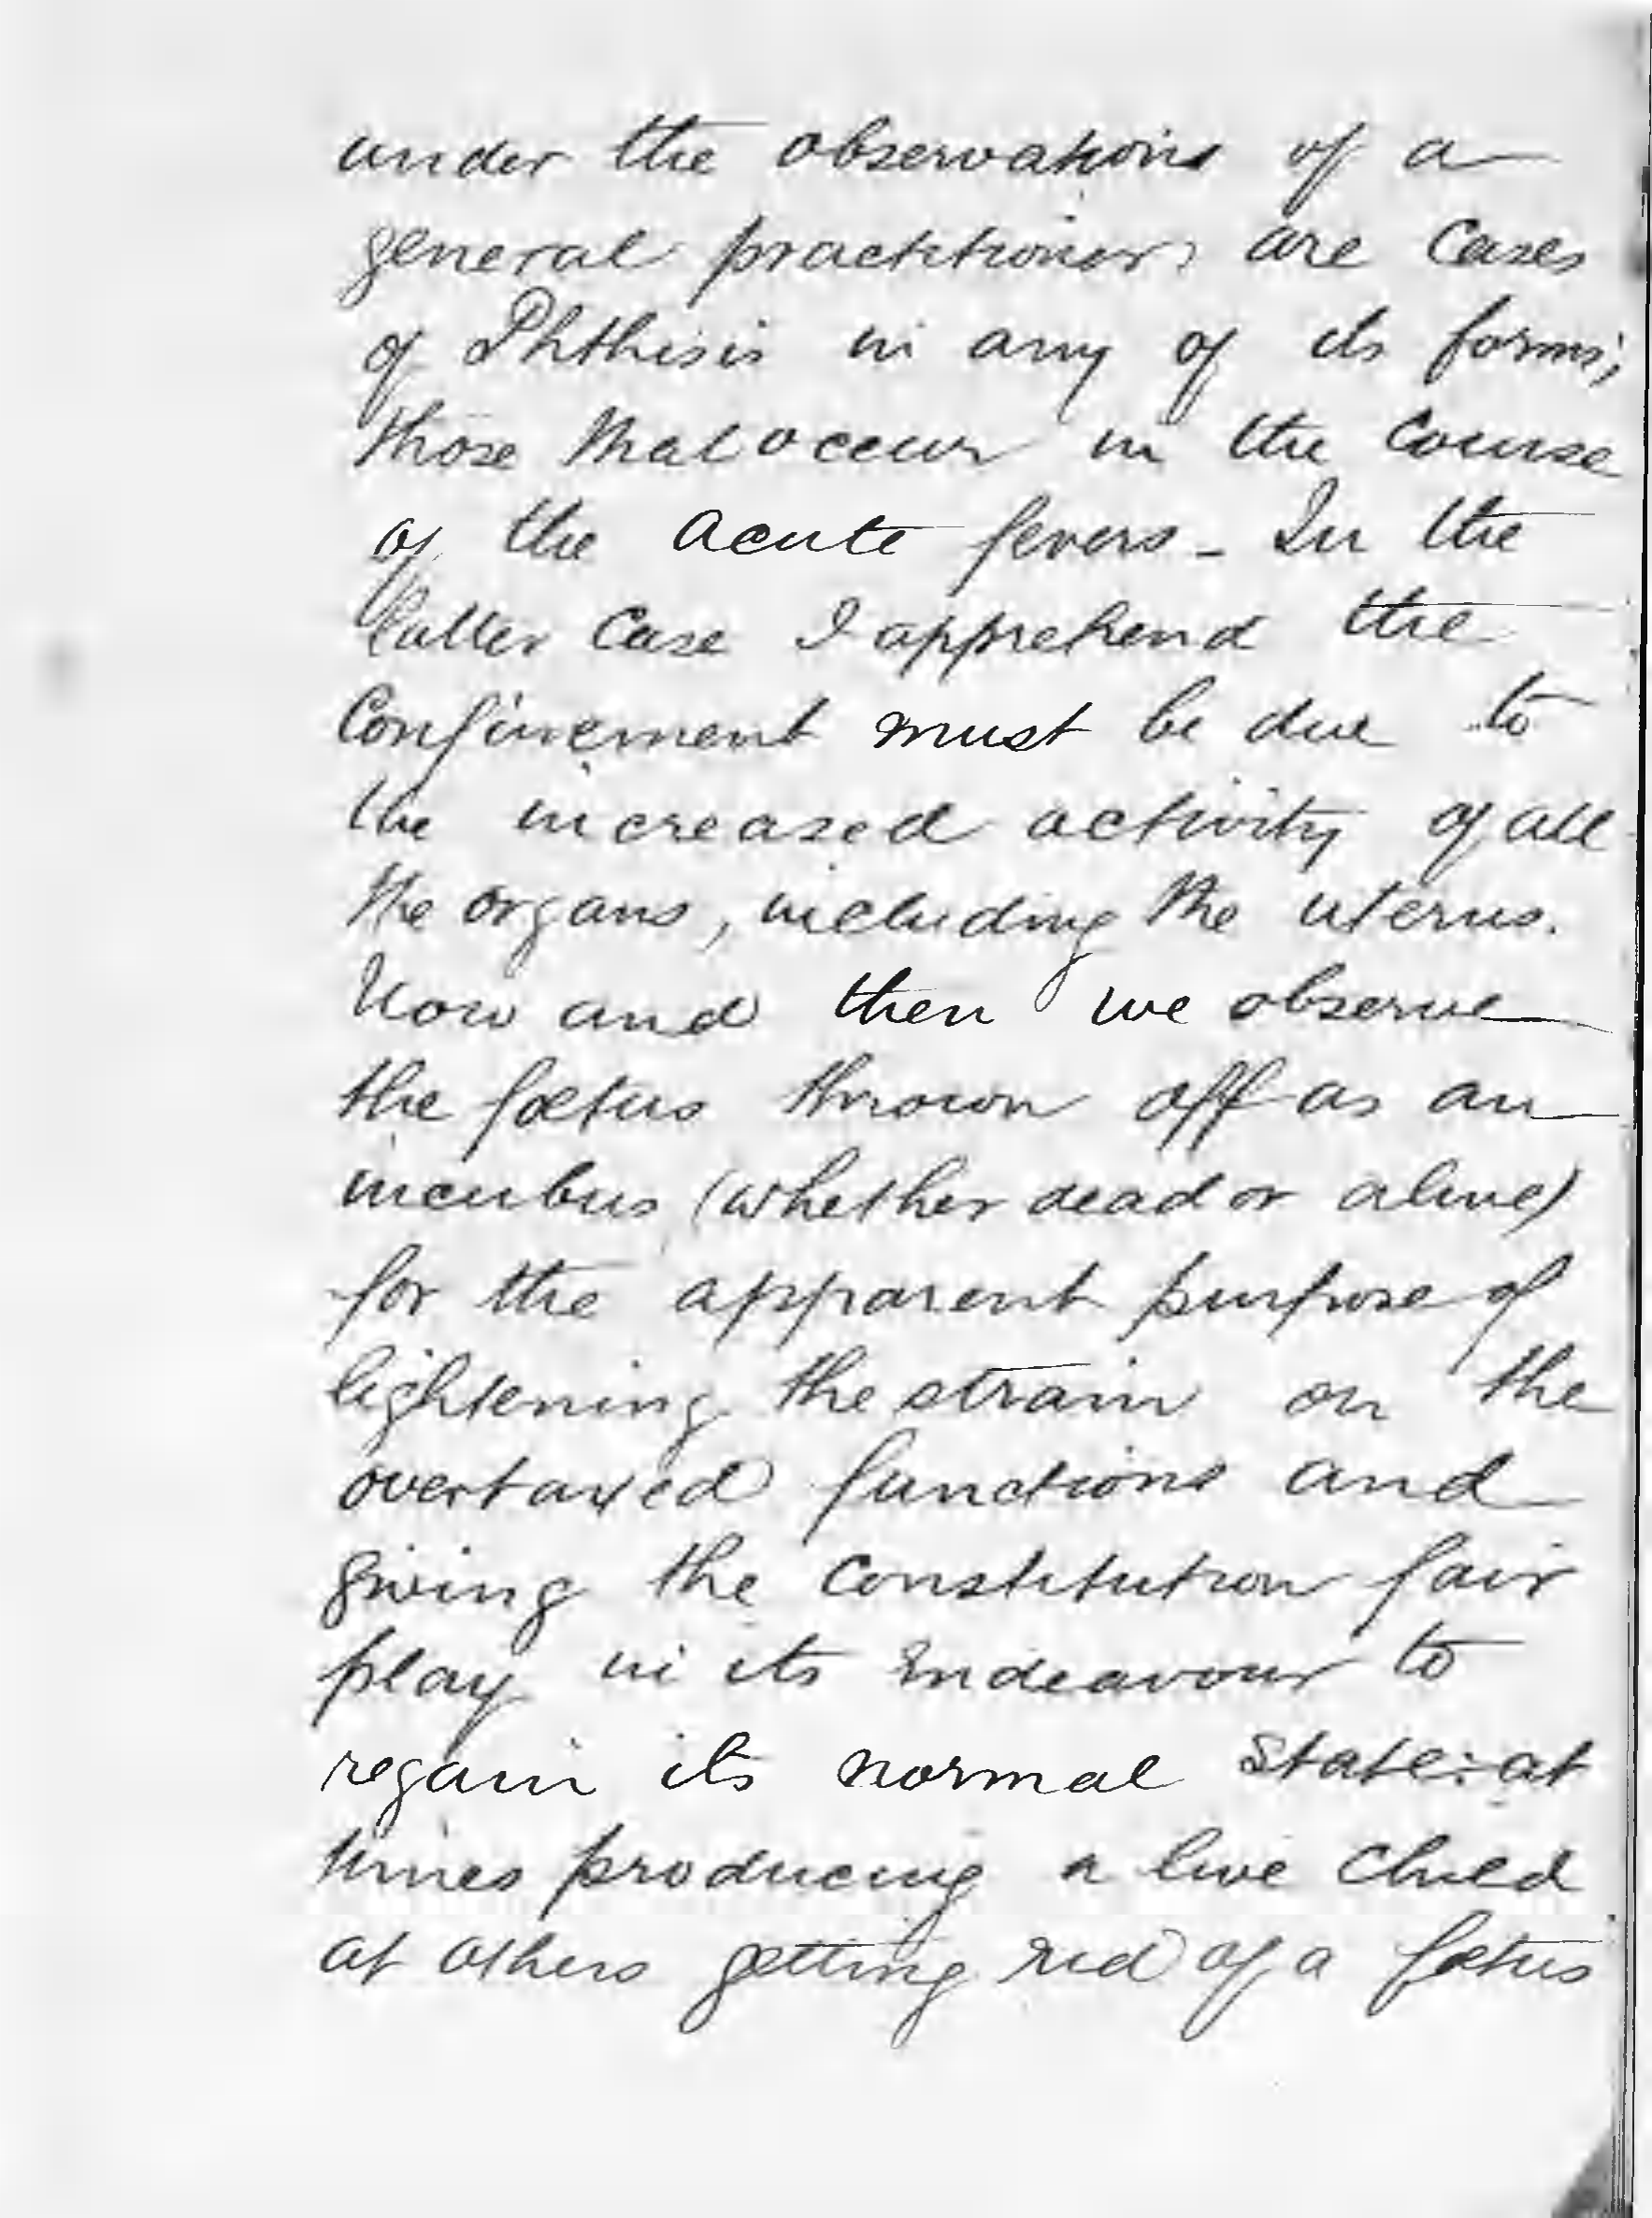 under the observations of a
general practitioner, are Cases
of Phthisis in any of its forms;
those that occur in the Course
of the acute fevers - In the
latter Case I apprehend the
Confinement must be due to
the increased activity of all
the organs, including the uterus.
Now and then we observe
the fœtus thrown off as an
incubus (whether dead or alive)
for the apparent purpose of
lightening the strain on the
overtaxed functions and
giving the Constitution fair
play in its endeavour to
regain its normal state:- at
times producing a live Child
at others getting rid of a fœtus